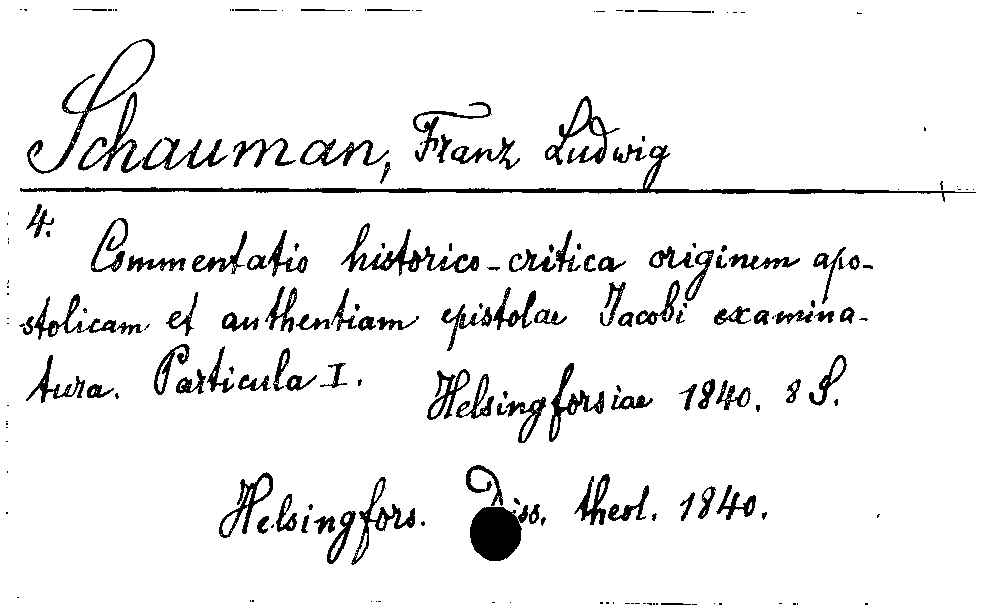 Schauman, Franz Ludwig
4.
Commentatio historico-critica originem apo-
stolicam et authentiam epistolae Jacobi examina-
tura. Particula I.
Helsingforsiae 1840. 8 S.
Helsingfors. Diss. theol. 1840.